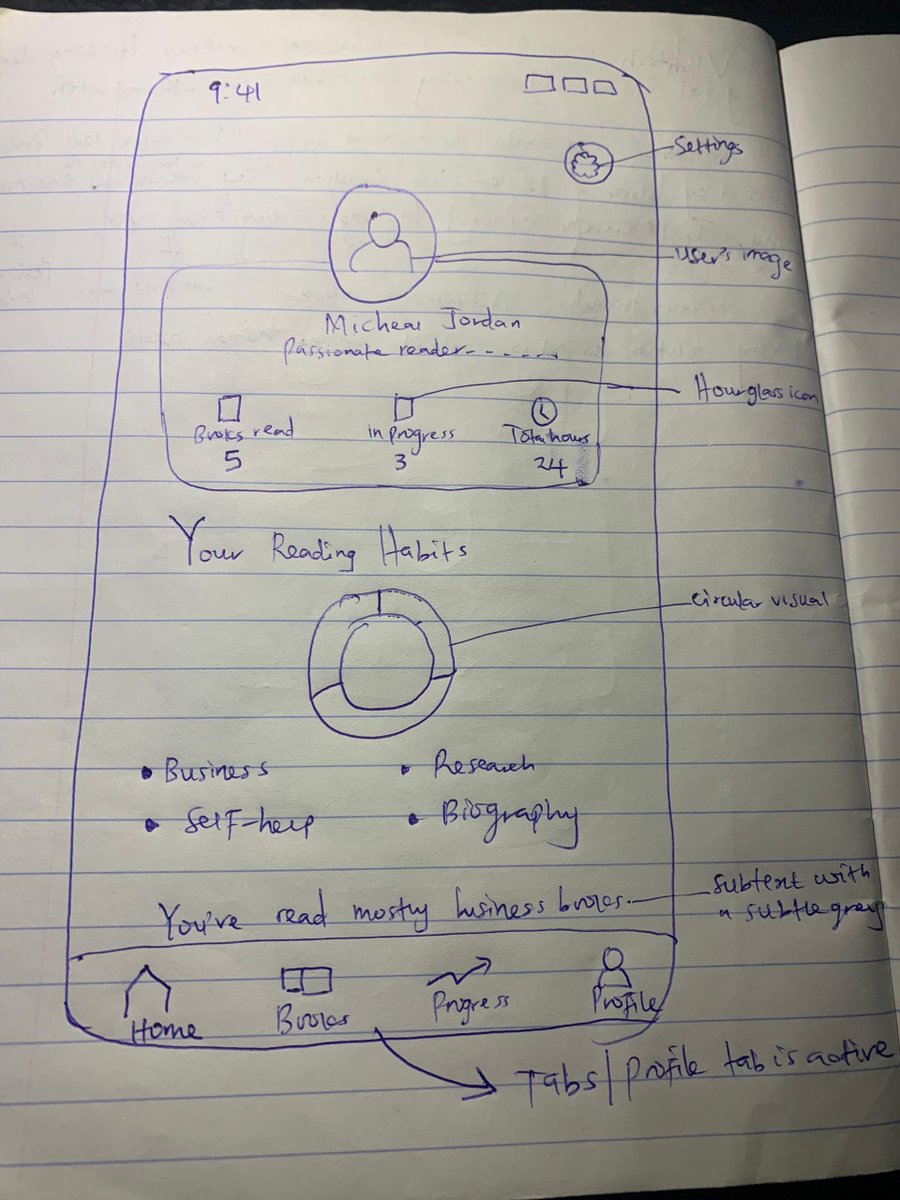 9:41
Settings
User's image
Micheal Jordan
Passionate reader-------
Hourglass icon
Books read
in progress
Total hours
5
3
24
Your Reading Habits
circular visual
• Business
• Research
• Self-help
• Biography
You've read mostly business books.
subtext with
a subtle gray
Home
Books
Progress
Profile
Tabs | profile tab is active